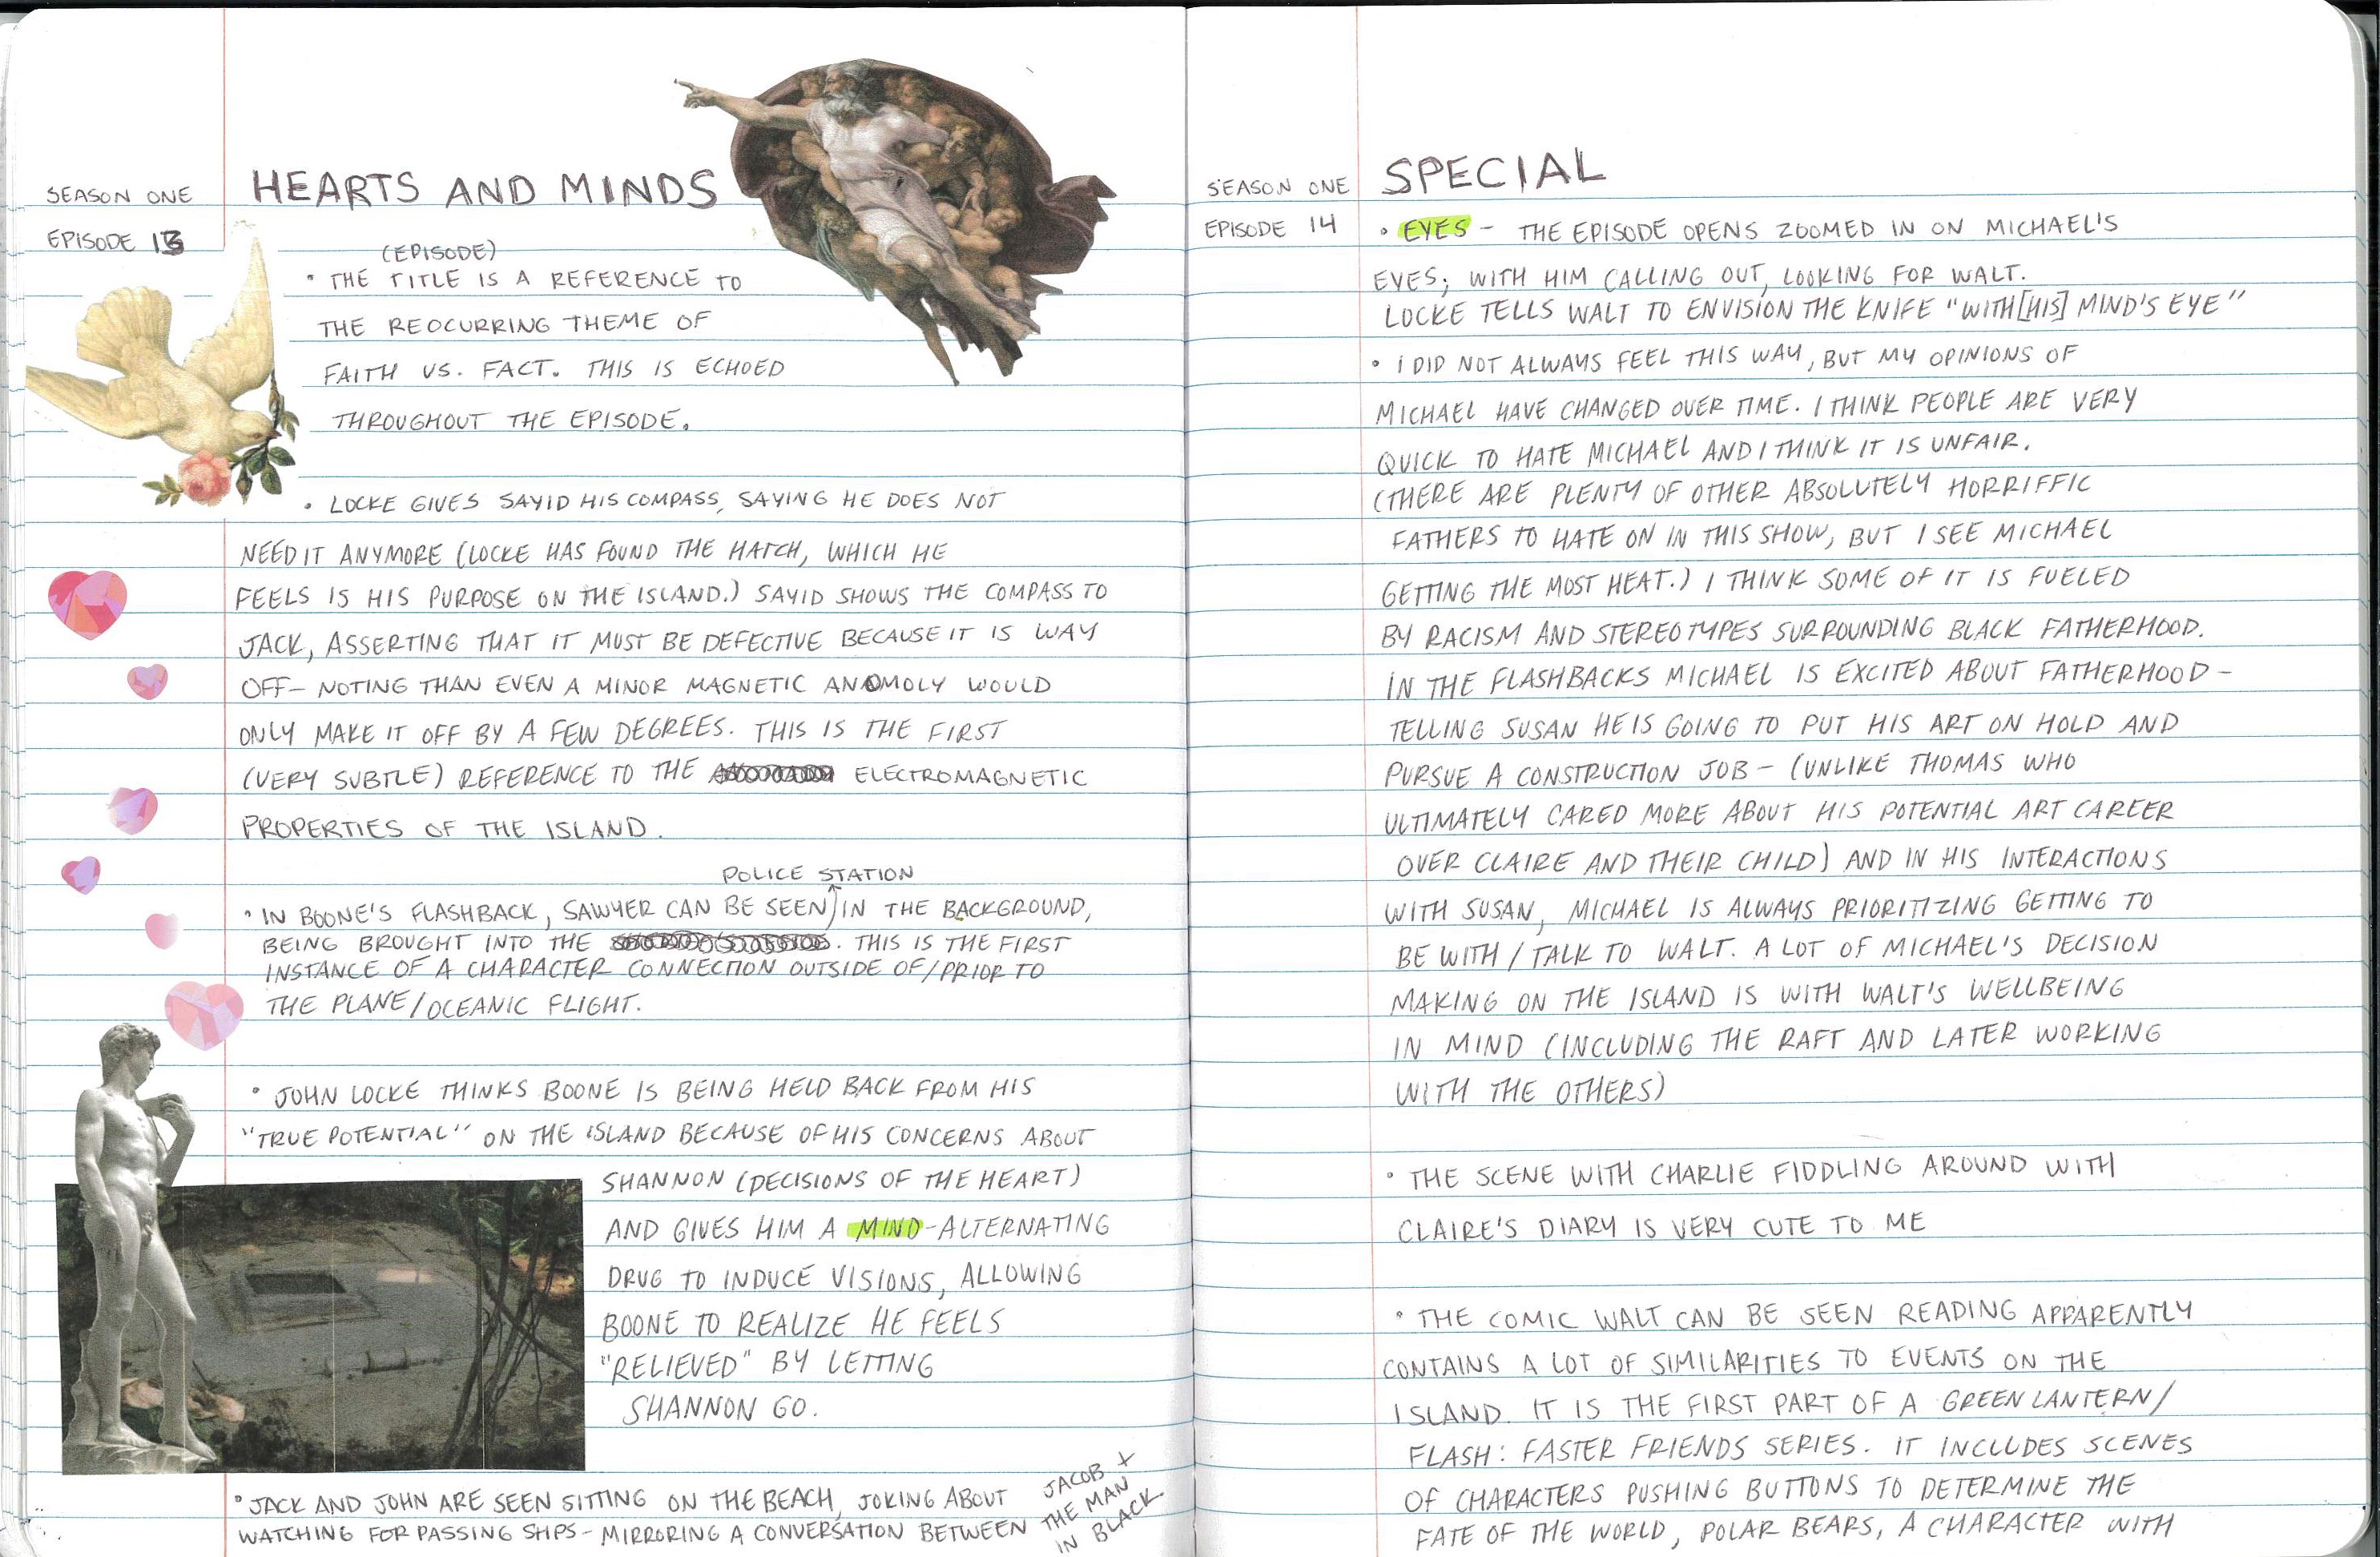 SEASON ONE
EPISODE 13
HEARTS AND MINDS
(EPISODE)
• THE TITLE IS A REFERENCE TO
THE REOCURRING THEME OF
FAITH VS. FACT. THIS IS ECHOED
THROUGHOUT THE EPISODE.
• LOCKE GIVES SAYID HIS COMPASS, SAYING HE DOES NOT
NEED IT ANYMORE (LOCKE HAS FOUND THE HATCH, WHICH HE
FEELS IS HIS PURPOSE ON THE ISLAND.) SAYID SHOWS THE COMPASS TO
JACK, ASSERTING THAT IT MUST BE DEFECTIVE BECAUSE IT IS WAY
OFF- NOTING THAN EVEN A MINOR MAGNETIC ANOMOLY WOULD
ONLY MAKE IT OFF BY A FEW DEGREES. THIS IS THE FIRST
(VERY SUBTLE) REFERENCE TO THE ELECTROMAGNETIC
PROPERTIES OF THE ISLAND.
POLICE STATION
• IN BOONE'S FLASHBACK, SAWYER CAN BE SEEN IN THE BACKGROUND,
BEING BROUGHT INTO THE . THIS IS THE FIRST
INSTANCE OF A CHARACTER CONNECTION OUTSIDE OF/PRIOR TO
THE PLANE/OCEANIC FLIGHT.
• JOHN LOCKE THINKS BOONE IS BEING HELD BACK FROM HIS
"TRUE POTENTIAL" ON THE ISLAND BECAUSE OF HIS CONCERNS ABOUT
SHANNON (DECISIONS OF THE HEART)
AND GIVES HIM A MIND-ALTERNATING
DRUG TO INDUCE VISIONS, ALLOWING
BOONE TO REALIZE HE FEELS
"RELIEVED" BY LETTING
SHANNON GO.
• JACK AND JOHN ARE SEEN SITTING ON THE BEACH, JOKING ABOUT
WATCHING FOR PASSING SHIPS - MIRRORING A CONVERSATION BETWEEN
JACOB +
THE MAN
IN BLACK.
SEASON ONE
EPISODE 14
SPECIAL
• EYES - THE EPISODE OPENS ZOOMED IN ON MICHAEL'S
EYES; WITH HIM CALLING OUT, LOOKING FOR WALT.
LOCKE TELLS WALT TO ENVISION THE KNIFE "WITH [HIS] MIND'S EYE"
• I DID NOT ALWAYS FEEL THIS WAY, BUT MY OPINIONS OF
MICHAEL HAVE CHANGED OVER TIME. I THINK PEOPLE ARE VERY
QUICK TO HATE MICHAEL AND I THINK IT IS UNFAIR.
(THERE ARE PLENTY OF OTHER ABSOLUTELY HORRIFFIC
FATHERS TO HATE ON IN THIS SHOW, BUT I SEE MICHAEL
GETTING THE MOST HEAT.) I THINK SOME OF IT IS FUELED
BY RACISM AND STEREOTYPES SURROUNDING BLACK FATHERHOOD.
IN THE FLASHBACKS MICHAEL IS EXCITED ABOUT FATHERHOOD -
TELLING SUSAN HE IS GOING TO PUT HIS ART ON HOLD AND
PURSUE A CONSTRUCTION JOB - (UNLIKE THOMAS WHO
ULTIMATELY CARED MORE ABOUT HIS POTENTIAL ART CAREER
OVER CLAIRE AND THEIR CHILD) AND IN HIS INTERACTIONS
WITH SUSAN, MICHAEL IS ALWAYS PRIORITIZING GETTING TO
BE WITH / TALK TO WALT. A LOT OF MICHAEL'S DECISION
MAKING ON THE ISLAND IS WITH WALT'S WELLBEING
IN MIND (INCLUDING THE RAFT AND LATER WORKING
WITH THE OTHERS)
• THE SCENE WITH CHARLIE FIDDLING AROUND WITH
CLAIRE'S DIARY IS VERY CUTE TO ME
• THE COMIC WALT CAN BE SEEN READING APPARENTLY
CONTAINS A LOT OF SIMILARITIES TO EVENTS ON THE
ISLAND. IT IS THE FIRST PART OF A GREEN LANTERN/
FLASH: FASTER FRIENDS SERIES. IT INCLUDES SCENES
OF CHARACTERS PUSHING BUTTONS TO DETERMINE THE
FATE OF THE WORLD, POLAR BEARS, A CHARACTER WITH